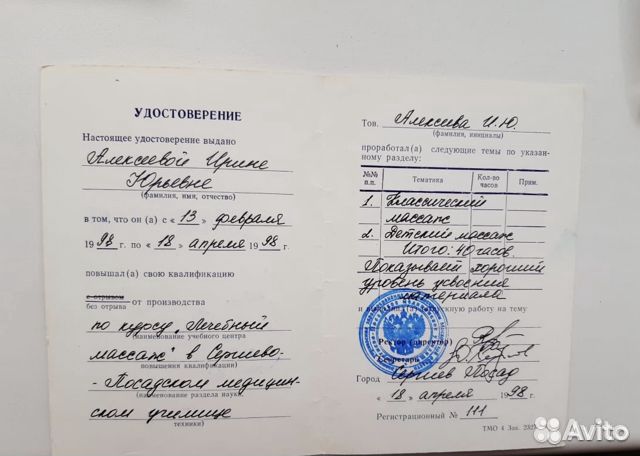 УДОСТОВЕРЕНИЕ
Настоящее удостоверение выдано
Алексеевой Ирине
Юрьевне
(фамилия, имя, отчество)
в том, что он (а) с « 13 » февраля
1998 г. по « 18 » апреля 1998 г.
повышал (а) свою квалификацию
с отрывом от производства
без отрыва
по курсу „Лечебный
(наименование учебного центра
массаж" в Сергиево-
повышения квалификации)
- Посадском медицин-
(наименование раздела науки
ском училище
техники)
Тов. Алексеева И.Ю.
(фамилия, инициалы)
проработал (а) следующие темы по указан-
ному разделу:
№№ п.п. Тематика Кол-во часов Прим.
1. Классический
массаж
2. Детский массаж
Итого: 40 часов.
Показывает хороший
уровень усвоения
материала
и выполнил (а) выпускную работу на тему
Ректор (директор)
Секретарь
Город Сергиев Посад
« 18 » апреля 1998 г.
Регистрационный № 111
ТМО 4 Зак.
Avito